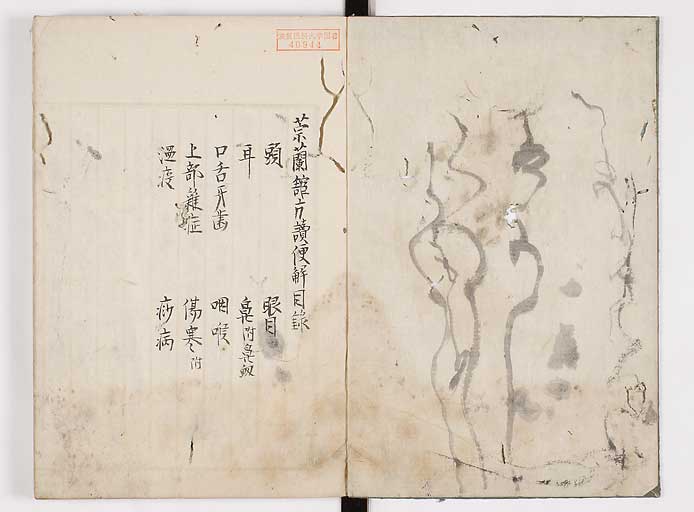 崇蘭館方讀便解目錄
頭　眼目
耳　鼻附鼻衄
口舌牙歯
咽喉
上部雜症　傷寒附
温疫　痧病
40944